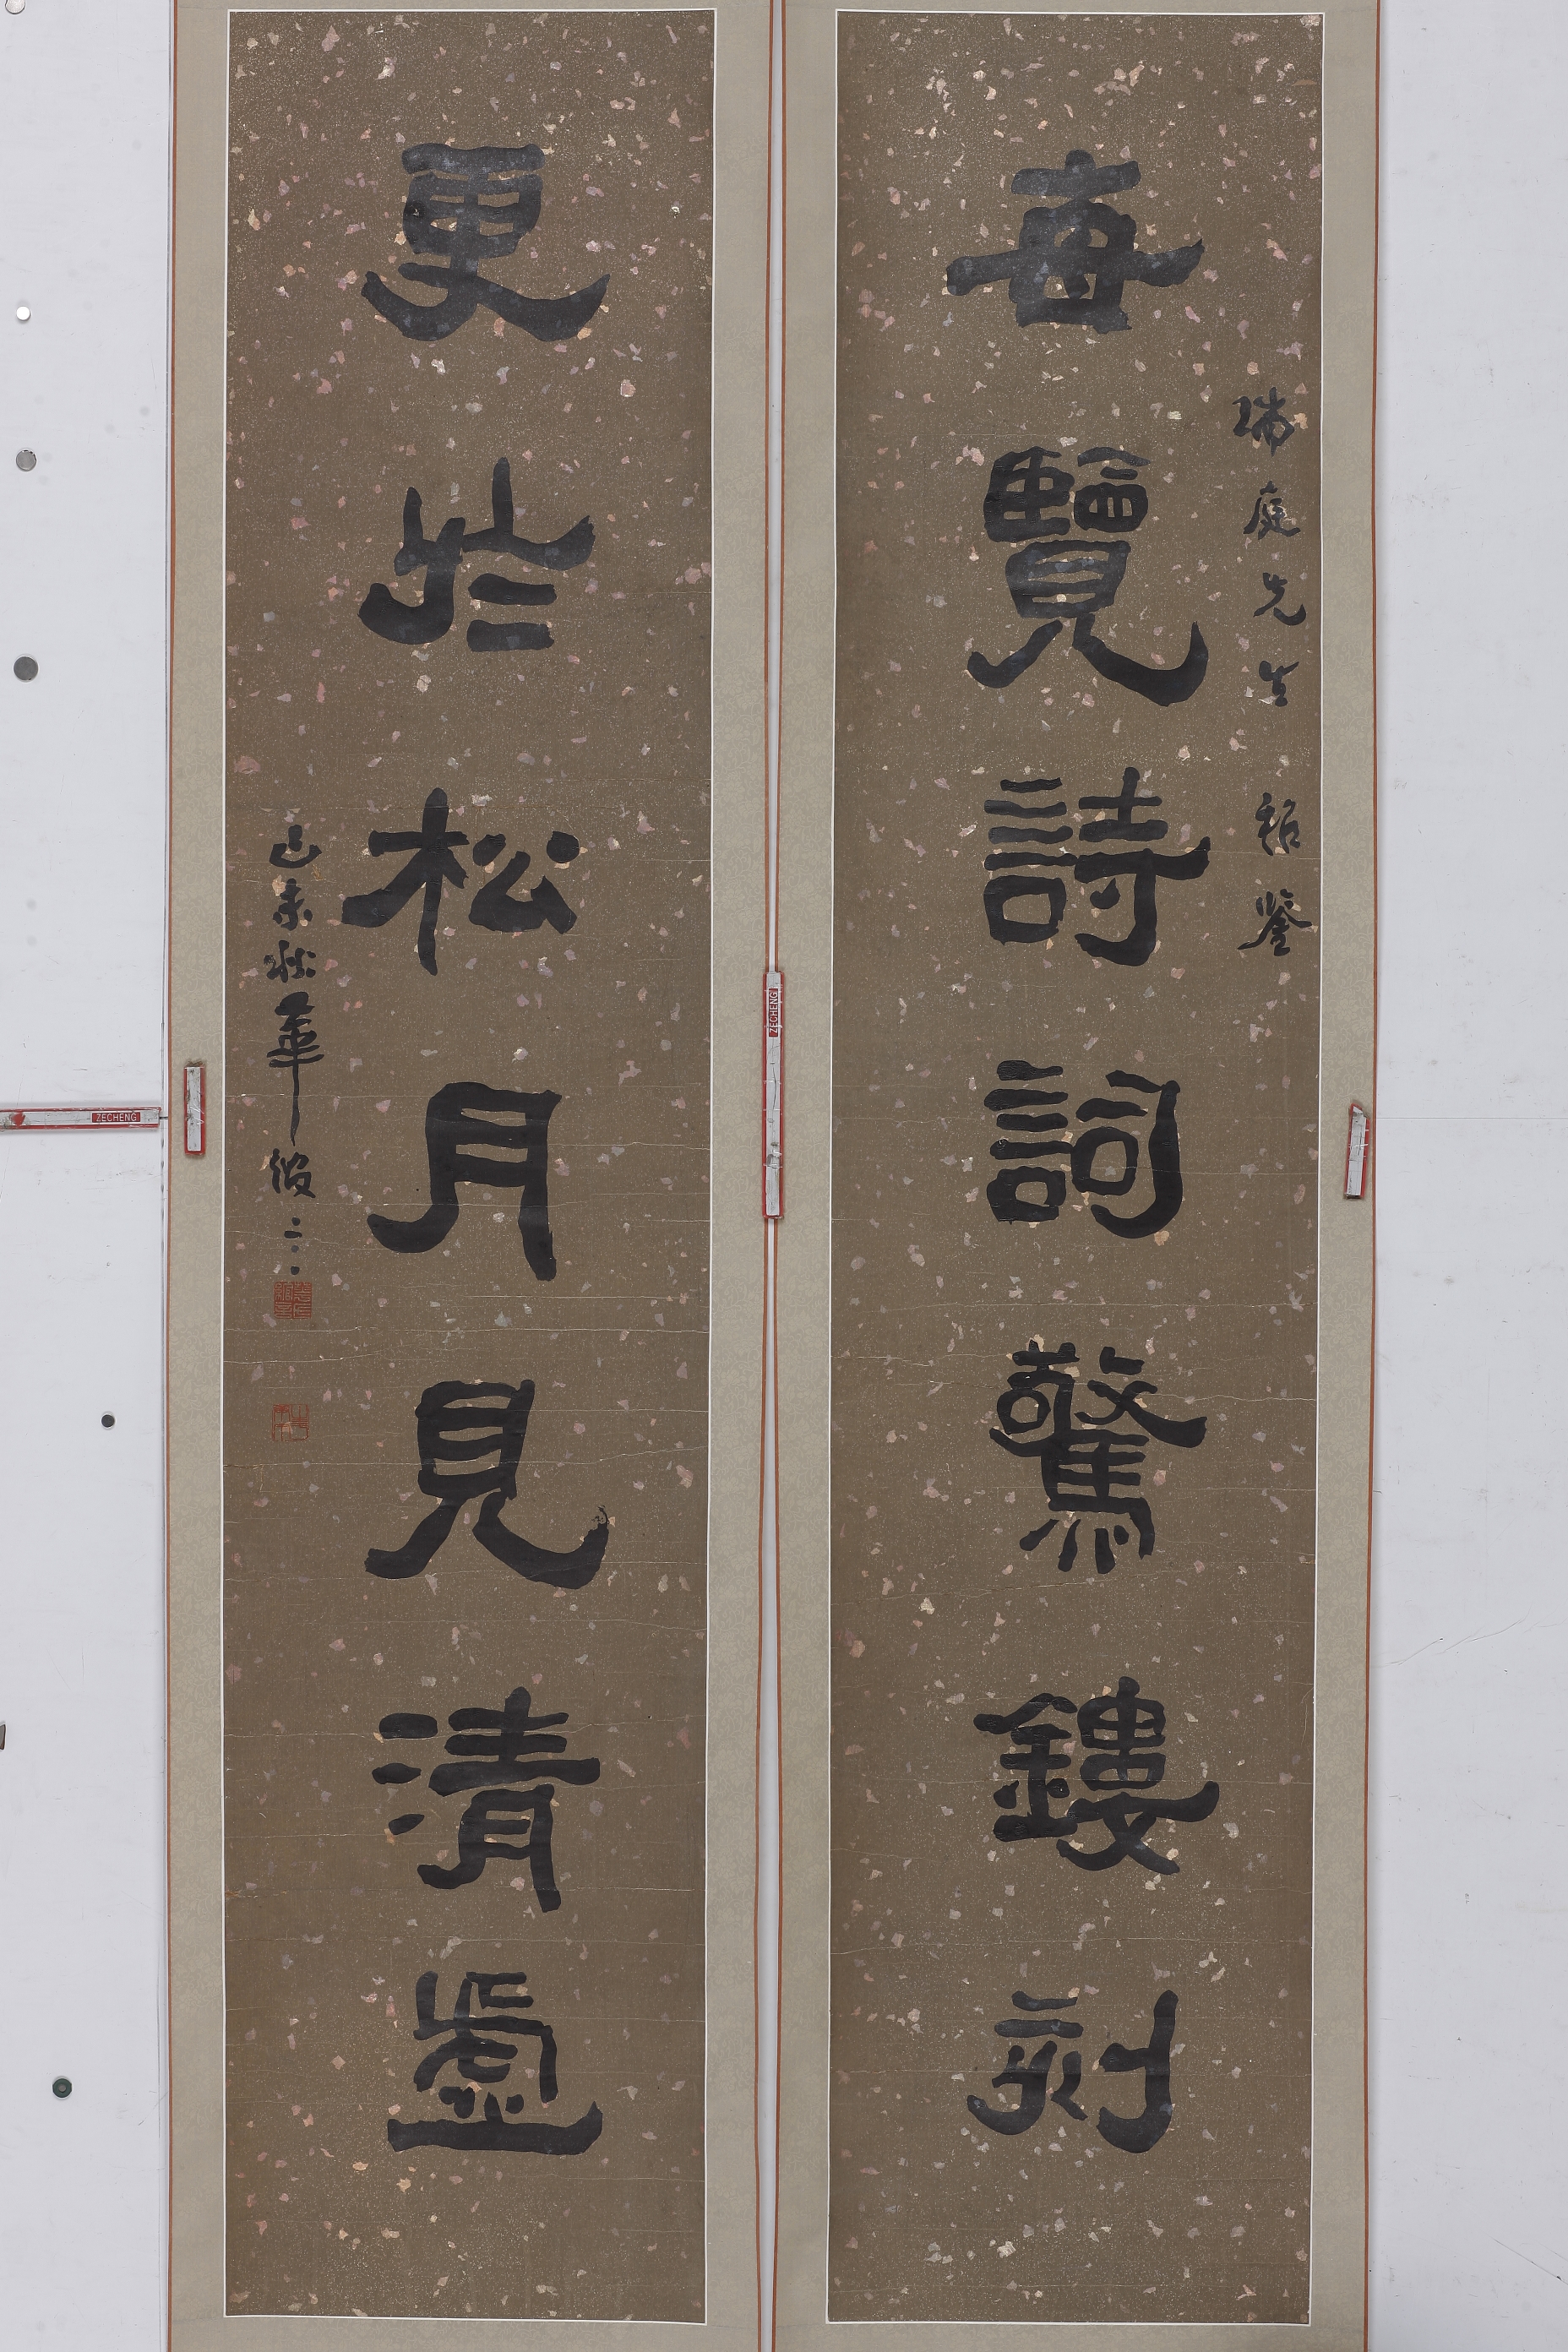 瑞庭先生 雅鑒
每覽詩詞驚鏤刻
更於松月見清虛
己未秋華
ZECHENG
ZECHENG